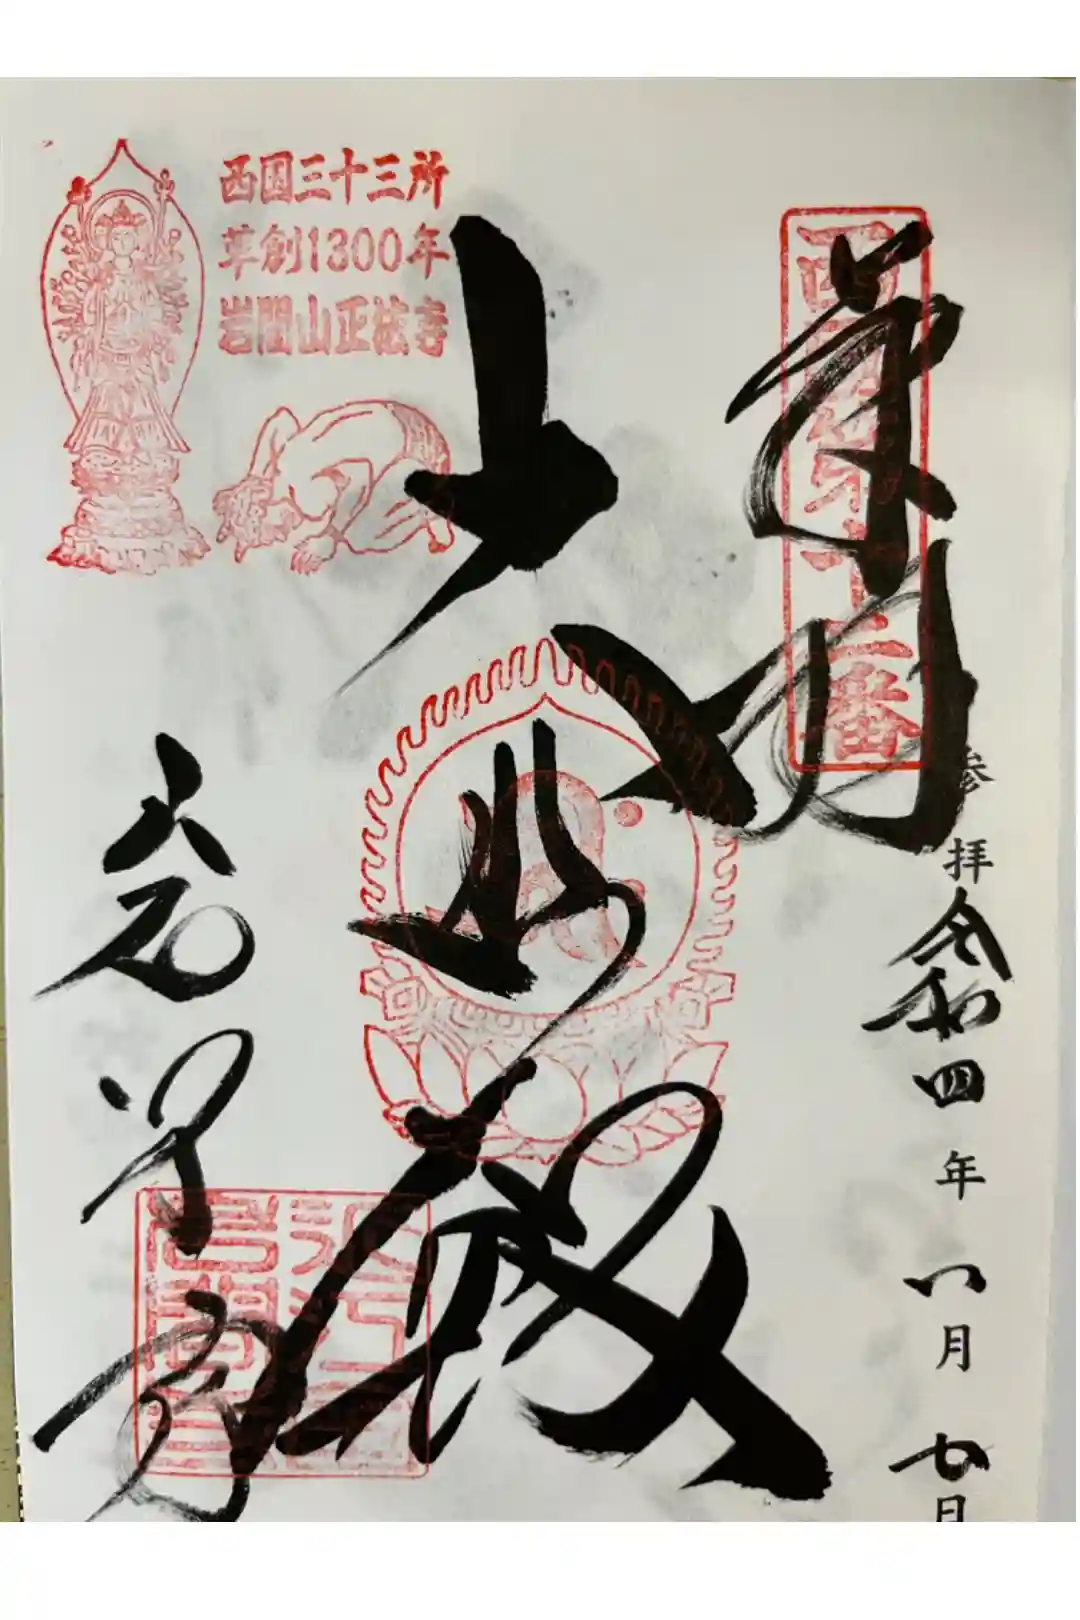 奉拝
西国第十二番
参拝
令和四年八月七日
大悲殿
岩間寺
西国三十三所
草創1300年
岩間山正法寺